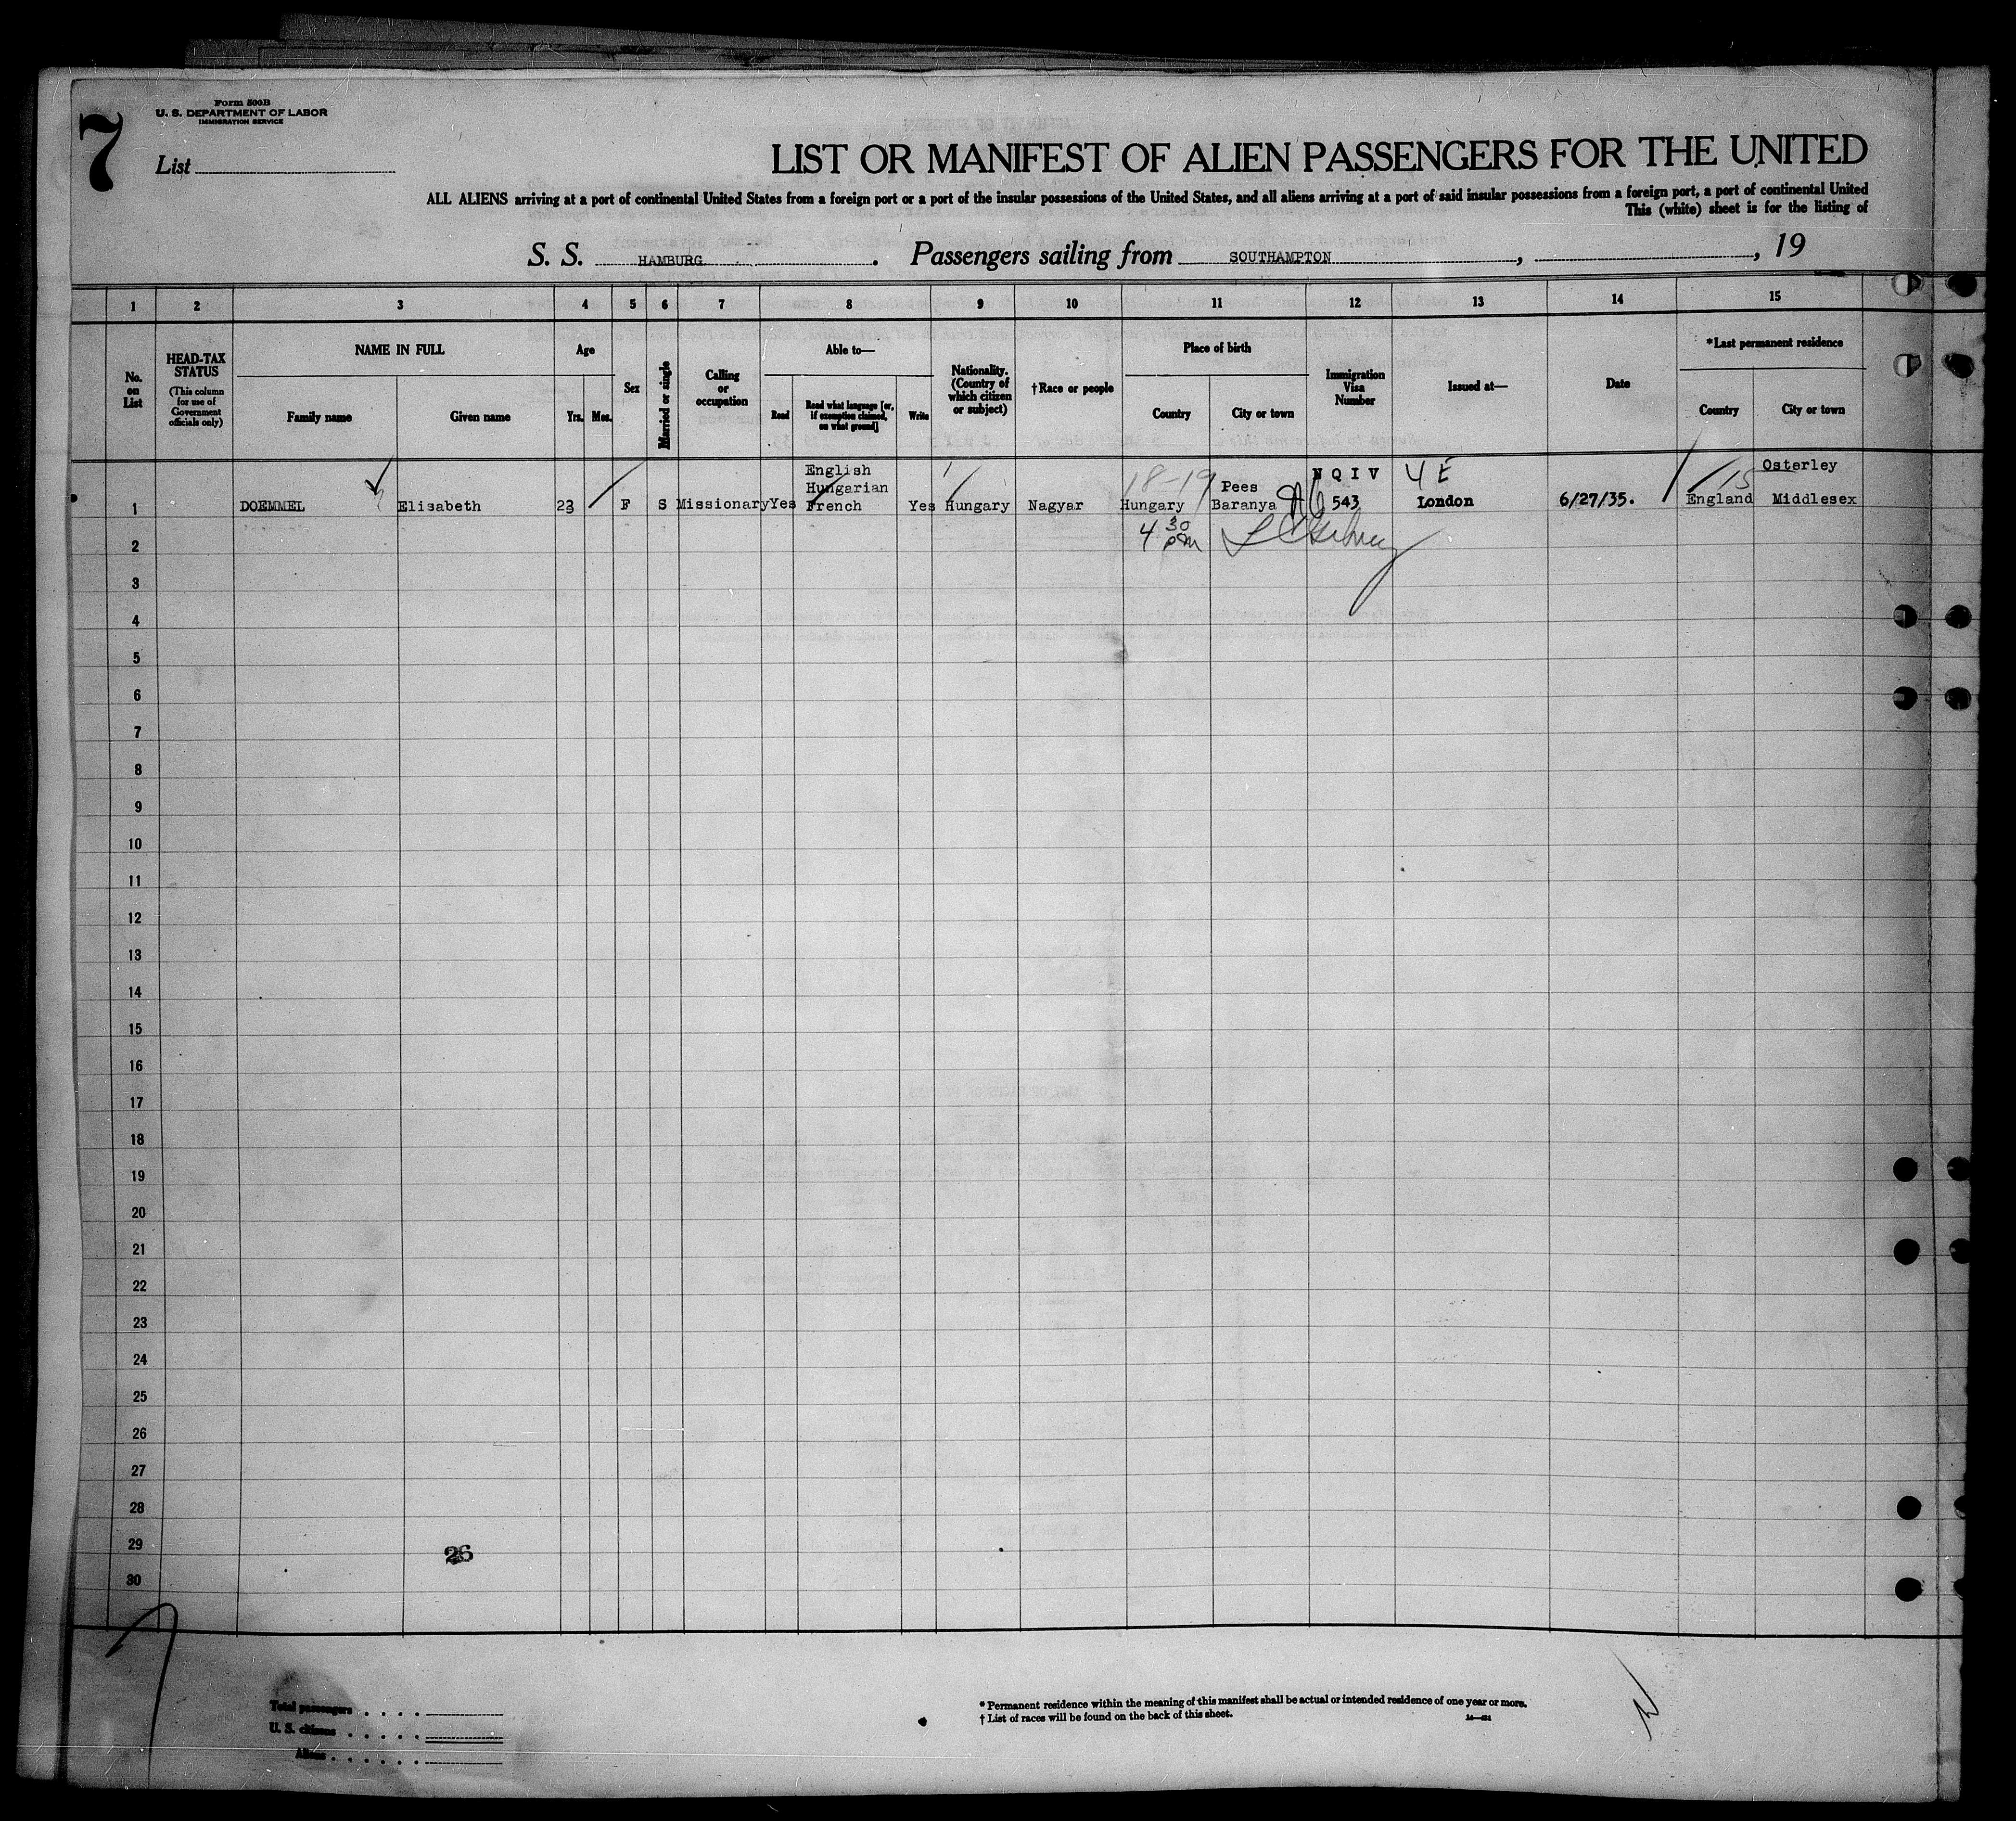 7
Form 500B
U. S. DEPARTMENT OF LABOR
IMMIGRATION SERVICE
List
LIST OR MANIFEST OF ALIEN PASSENGERS FOR THE UNITED
ALL ALIENS arriving at a port of continental United States from a foreign port or a port of the insular possessions of the United States, and all aliens arriving at a port of said insular possessions from a foreign port, a port of continental United
This (white) sheet is for the listing of
S. S. HAMBURG . Passengers sailing from SOUTHAMPTON , , 19
1 2 3 4 5 6 7 8 9 10 11 12 13 14 15
No. on List
HEAD-TAX STATUS (This column for use of Government officials only)
NAME IN FULL
Family name
Given name
Age
Yrs.
Mos.
Sex
Married or single
Calling or occupation
Able to—
Read
Read what language [or, if exemption claimed, on what ground]
Write
Nationality. (Country of which citizen or subject)
† Race or people
Place of birth
Country
City or town
Immigration Visa Number
Issued at—
Date
*Last permanent residence
Country
City or town
English
Hungarian
18-19
Pees
N Q I V
4 E
15
Osterley
1 DOEMMEL Elisabeth 23 F S Missionary Yes French Yes Hungary Nagyar Hungary Baranya 543 London 6/27/35. England Middlesex
4 30 pm
2
3
4
5
6
7
8
9
10
11
12
13
14
15
16
17
18
19
20
21
22
23
24
25
26
27
28
29
26
30
Total passengers . . . .
U. S. citizens . . . . .
Aliens . . . . . .
* Permanent residence within the meaning of this manifest shall be actual or intended residence of one year or more.
† List of races will be found on the back of this sheet.